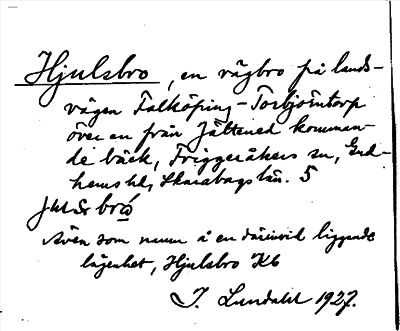 Hjulsbro, en vägbro på lands-
vägen Falköping-Torbjörntorp
över en från Jättened komman-
de bäck, Friggeråkers sn, Gud-
hems hd, Skarabags län. 5
Även som namn å en därinvid liggande
lägenhet, Hjulsbro Kb
J. Lundahl 1927.